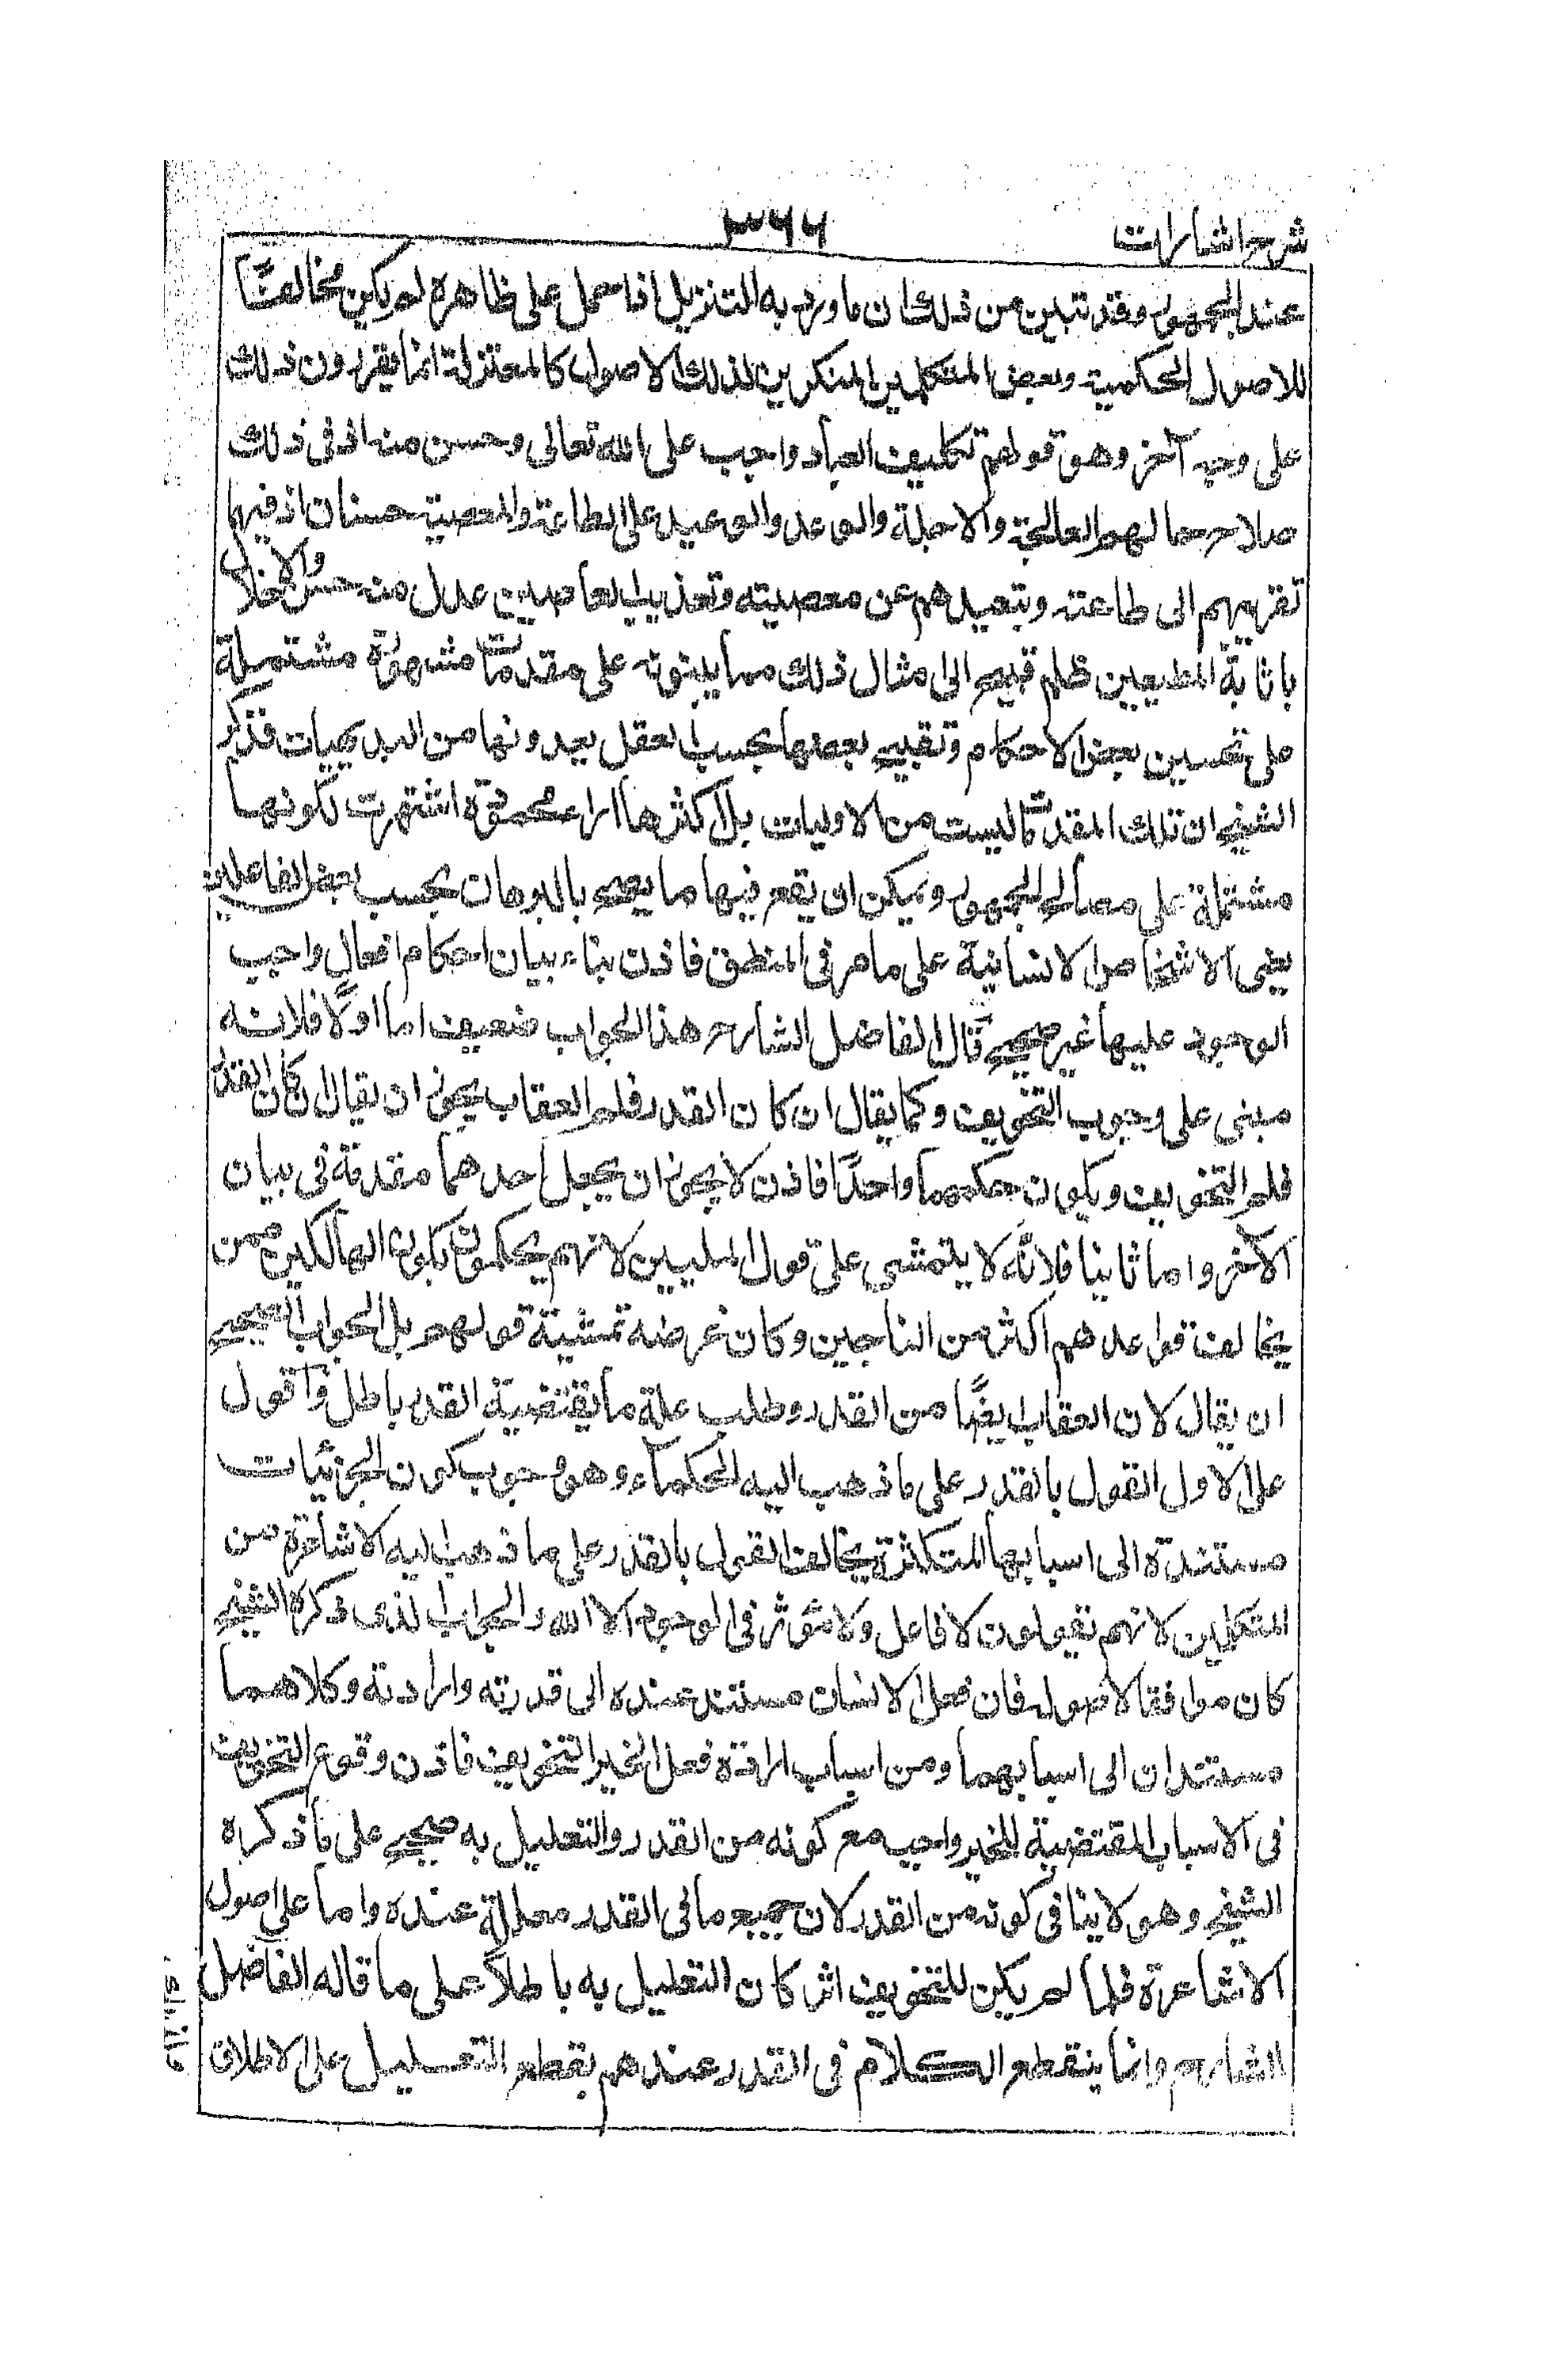 شرح اشارات
٣٦٦
عند الجمهور وقد تبين من ذلك ان ما ورد به التنزيل اذا حمل على ظاهره لم يكن مخالفًا
للاصول الحكمية وبعض المتكلمين المنكرين لذلك الاصول كالمعتزلة انما يقررون ذلك
على وجه آخر وهو قولهم تكليف العباد واجب على الله تعالى وحسن منه اذ فى ذلك
صلاح حالهم العاجلة والآجلة والوعد والوعيد على الطاعة والمعصية حسنان اذ فيهما
تقريبهم الى طاعته وتبعيدهم عن معصيته وتعذيب العاصيين عدل منه حسن والاخلال
باثابة المطيعين ظلم قبيح الى مثال ذلك مما يبنونه على مقدمات مشهورة مشتملة
على تحسين بعض الاحكام وتقبيح بعضها بحسب العقل يعدونها من البديهيات فذكر
الشيخ ان تلك المقدمات ليست من الاوليات بل اكثرها اراء محمودة اشتهرت لكونها
مشتملة على مصالح الجمهور ويمكن ان يقع فيها ما يصح بالبرهان بحسب بعض الفاعلين
يعنى الاشخاص الانسانية على ما مر فى المنطق فاذن بناء بيان احكام افعال واجب
الوجود عليها غير صحيح قال الفاضل الشارح هذا الجواب ضعيف اما اولًا فلانه
مبنى على وجوب التخويف وكما يقال ان كان القدر فلم العقاب يجوز ان يقال ان كان القدر
فلم التخويف ويكون حكمهما واحدًا فاذن لا يجوز ان يجعل احدهما مقدمة فى بيان
الآخر واما ثانيا فلانّه لا يتمشى على قول المليين لانهم يحكمون بكون الهالكين ممن
يخالف قواعدهم اكثر من الناجين وكان غرضه تمشية قولهم بل الجواب الصحيح
ان يقال لان العقاب ايضًا من القدر وطلب علة ما يقتضيه القدر باطل وآقول
على الاول القول بالقدر على ما ذهب اليه الحكمآء وهو وجوب كون الجزئيات
مستندة الى اسبابها المتكثرة يخالف القول بالقدر على ما ذهب اليه الاشاعرة من
المتكلمين لانهم يقولون لا فاعل ولا مؤثر فى الوجود الا الله والجواب الذى ذكره الشيخ
كان موافقا لاصوله فان فعل الانسان مستند عنده الى قدرته وارادته وكلاهما
مستندان الى اسبابهما ومن اسباب ارادة فعل الخير التخويف فاذن وقوع التخويف
فى الاسباب المقتضية للخير واجب مع كونه من القدر والتعليل به صحيح على ما ذكره
الشيخ وهو لا ينافى كونه من القدر لان جميع ما فى القدر معللة عنده واما على اصول
الاشاعرة فلما لم يكن للتخويف اثر كان التعليل به باطلًا على ما قاله الفاضل
الشارح وانما ينقطع الكلام فى القدر عندهم بقطع التعليل على الاطلاق